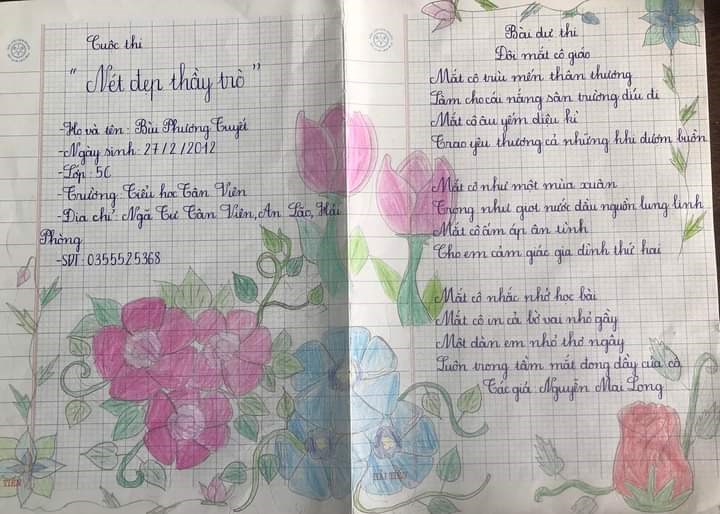 Cuộc thi
" Nét đẹp thầy trò "
-Họ và tên: Bùi Phương Tuyết
-Ngày sinh: 27/2/2012
-Lớp: 5C
-Trường: Tiểu học Tân Viên
-Địa chỉ: Ngã Tư Tân Viên, An Lão, Hải
Phòng
-SĐT: 0355525368
TIẾN
Bài dự thi
Đôi mắt cô giáo
Mắt cô trìu mến thân thương
Làm cho cái nắng sân trường dịu đi
Mắt cô âu yếm diệu kì
Trao yêu thương cả những khi đượm buồn
Mắt cô như một mùa xuân
Trong như giọt nước đầu nguồn lung linh
Mắt cô ấm áp ân tình
Cho em cảm giác gia đình thứ hai
Mắt cô nhắc nhở học bài
Mắt cô in cả bờ vai nhỏ gầy
Một đàn em nhỏ thơ ngây
Luôn trong tầm mắt đong đầy của cô
Tác giả: Nguyễn Mai Long
HẢI TIẾN